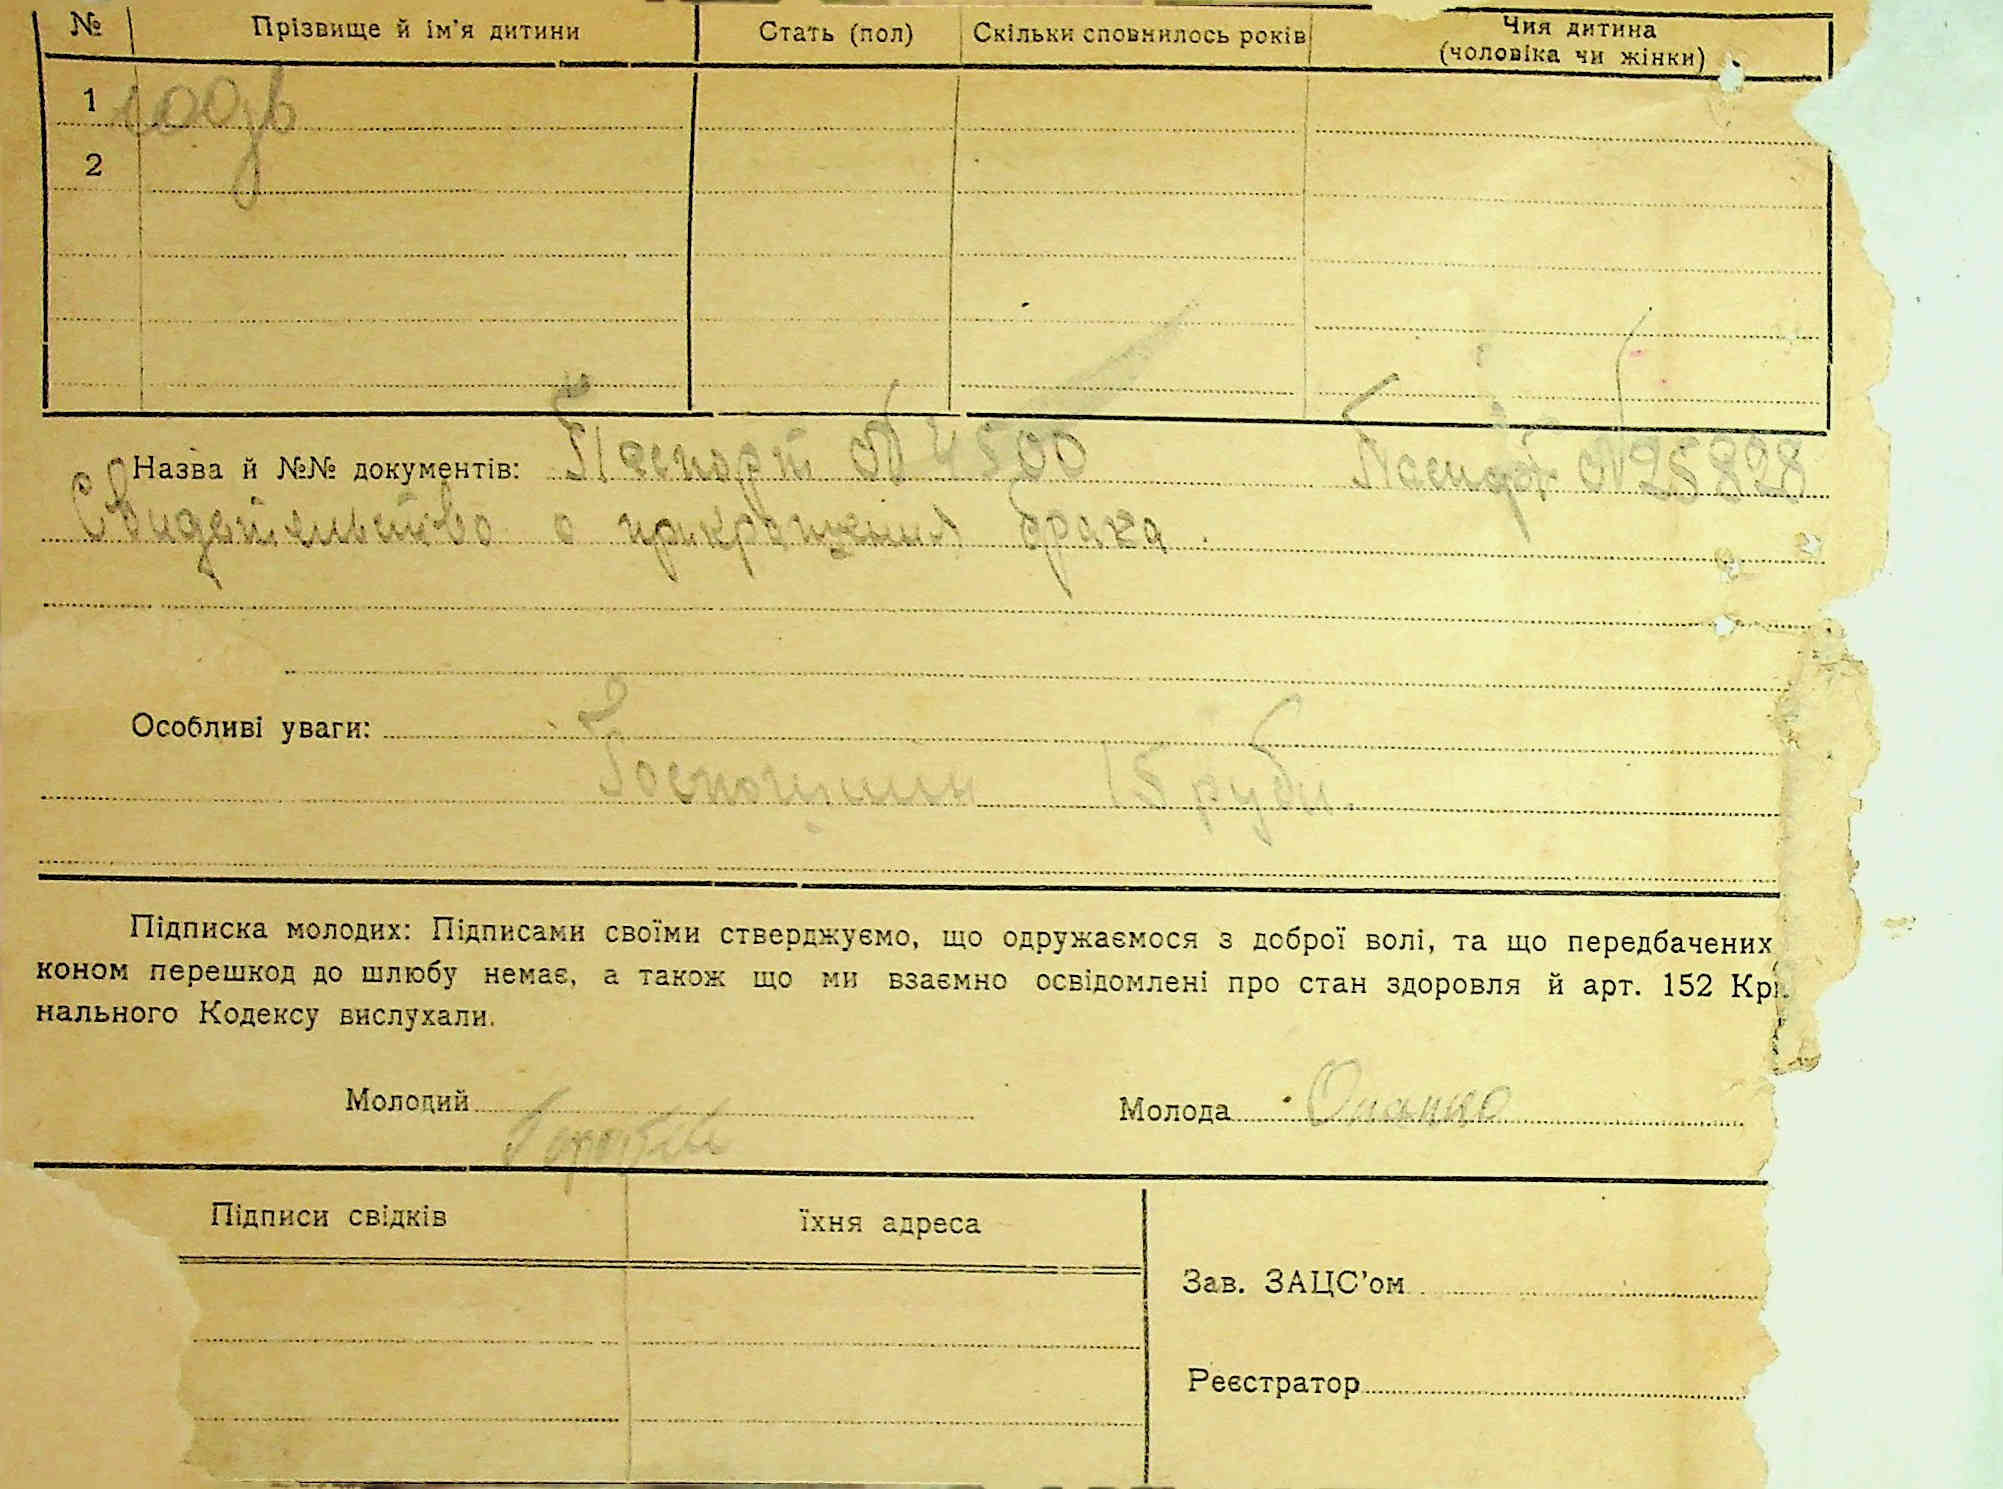 № Прізвище й ім'я дитини Стать (пол) Скільки сповнилось років Чия дитина
(чоловіка чи жінки)
1
2
Назва й №№ документів: Паспорт № 4500 Паспорт № 25828
Свидетельство о прикращения брака.
Особливі уваги:
Госпошлин 15 рубл.
Підписка молодих: Підписами своїми стверджуємо, що одружаємося з доброї волі, та що передбачених
коном перешкод до шлюбу немає, а також що ми взаємно освідомлені про стан здоровля й арт. 152 Кри
нального Кодексу вислухали.
Молодий Молода
Підписи свідків їхня адреса
Зав. ЗАЦС'ом
Реєстратор